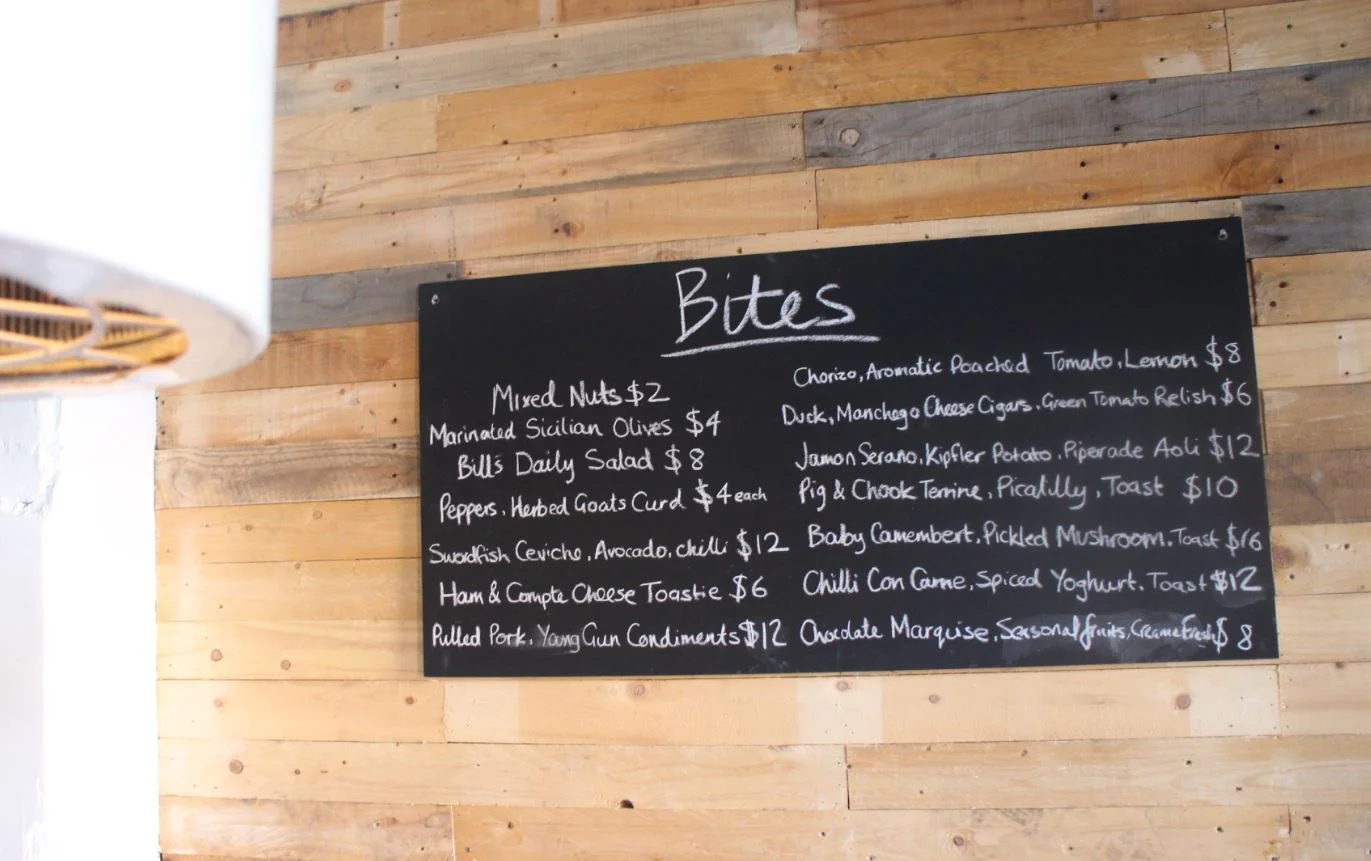 Bites
Mixed Nuts $2
Marinated Sicilian Olives $4
Bill's Daily Salad $8
Peppers, Herbed Goats Curd $4 each
Swordfish Ceviche, Avocado, chilli $12
Ham & Compte Cheese Toastie $6
Pulled Pork, Yang Gun Condiments $12
Chorizo, Aromatic Poached Tomato, Lemon $8
Duck, Manchego Cheese Cigars, Green Tomato Relish $6
Jamon Serano, Kipfler Potato, Piperade Aoli $12
Pig & Chook Terrine, Picalilly, Toast $10
Baby Camembert, Pickled Mushroom, Toast $16
Chilli Con Carne, Spiced Yoghurt, Toast $12
Chocolate Marquise, Seasonal fruits, Creame Fresh $8